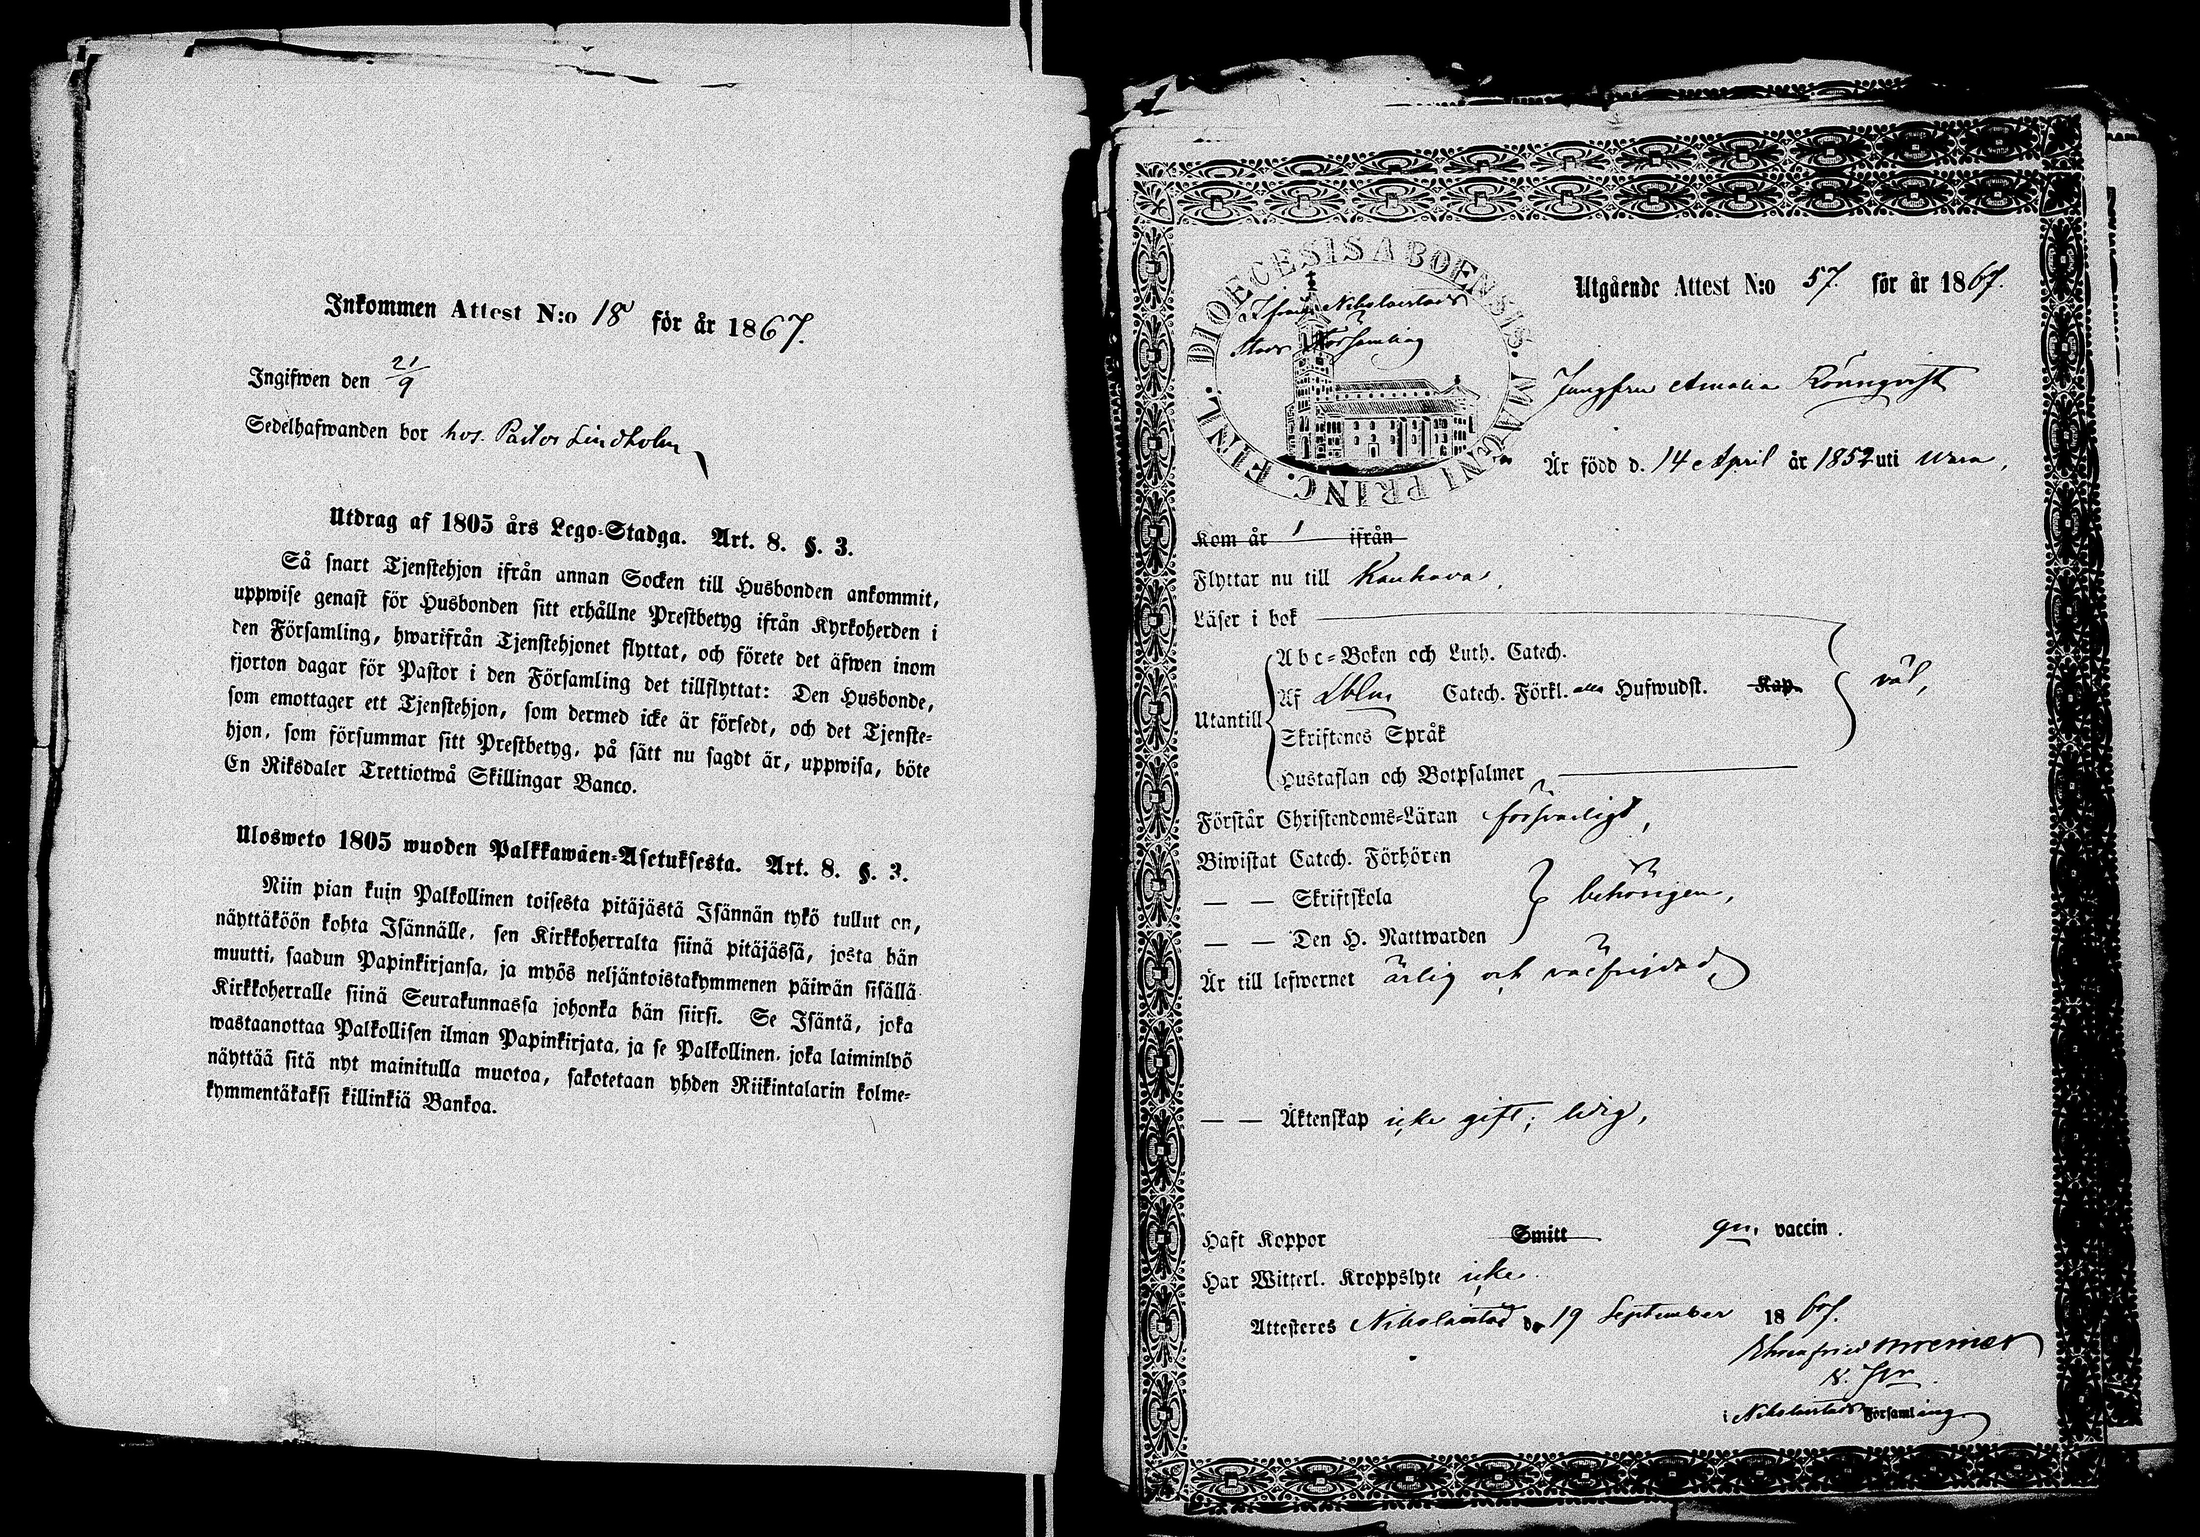 Inkommen Attest N:o 18 för år 1867.
Ingifwen den 21/9
Sedelhafwanden bor hos Pastor Lindholm
Utdrag af 1805 års Lego-Stadga. Art. 8. §. 3.
Så snart Tjenstehjon ifrån annan Socken till Husbonden ankommit,
uppwise genast för Husbonden sitt erhållne Prestbetyg ifrån Kyrkoherden i
den Församling, hwarifrån Tjenstehjonet flyttat, och förete det äfwen inom
fjorton dagar för Pastor i den Församling det tillflyttat: Den Husbonde,
som emottager ett Tjenstehjon, som dermed icke är försedt, och det Tjenste-
hjon, som försummar sitt Prestbetyg, på sätt nu sagdt är, uppwisa, böte
En Riksdaler Trettiotwå Skillingar Banco.
Ulosweto 1805 wuoden Palkkawäen-Asetuksesta. Art. 8. §. 3.
Niin pian kuin Palkollinen toisesta pitäjästä Isännän tykö tullut on,
näyttäköön kohta Isännälle, sen Kirkkoherralta siinä pitäjässä, josta hän
muutti, saadun Papinkirjansa, ja myös neljäntoistakymmenen päiwän sisällä
Kirkkoherralle siinä Seurakunnassa johonka hän siirsi. Se Isäntä, joka
wastaanottaa Palkollisen ilman Papinkirjata, ja se Palkollinen, joka laiminlyö
näyttää sitä nyt mainitulla muotoa, sakotetaan yhden Riikintalarin kolme-
kymmentäkaksi killinkiä Bankoa.
DIOECESIS ABOENSIS. MAGNI PRINC. FINL.
Ifrån Nikolaistads
Stads Församling
Utgående Attest N:o 57. för år 1867.
Jungfru Amalia Rönnqvist
Är född d. 14 April år 1852 uti Wasa,
Kom år 1 ifrån
Flyttar nu till Kauhava,
Läser i bok
Abc-Boken och Luth. Catech.
Utantill Af Catech. Förkl. Hufwudst. Kap. väl,
Skriftenes Språk
Hustaflan och Botpsalmer
Förstår Christendoms-Läran försvarligt,
Biwistat Catech. Förhören
— — Skriftskola behörigen,
— — Den H. Nattwarden
Är till lefwernet ärlig och välfrejdad,
— — Äktenskap icke gift; ledig,
Haft Koppor Smitt gm. vaccin.
Har Witterl. Kroppslyte icke.
Attesteres Nikolaistad d. 19 September 1867.
i Nikolaistads Församling